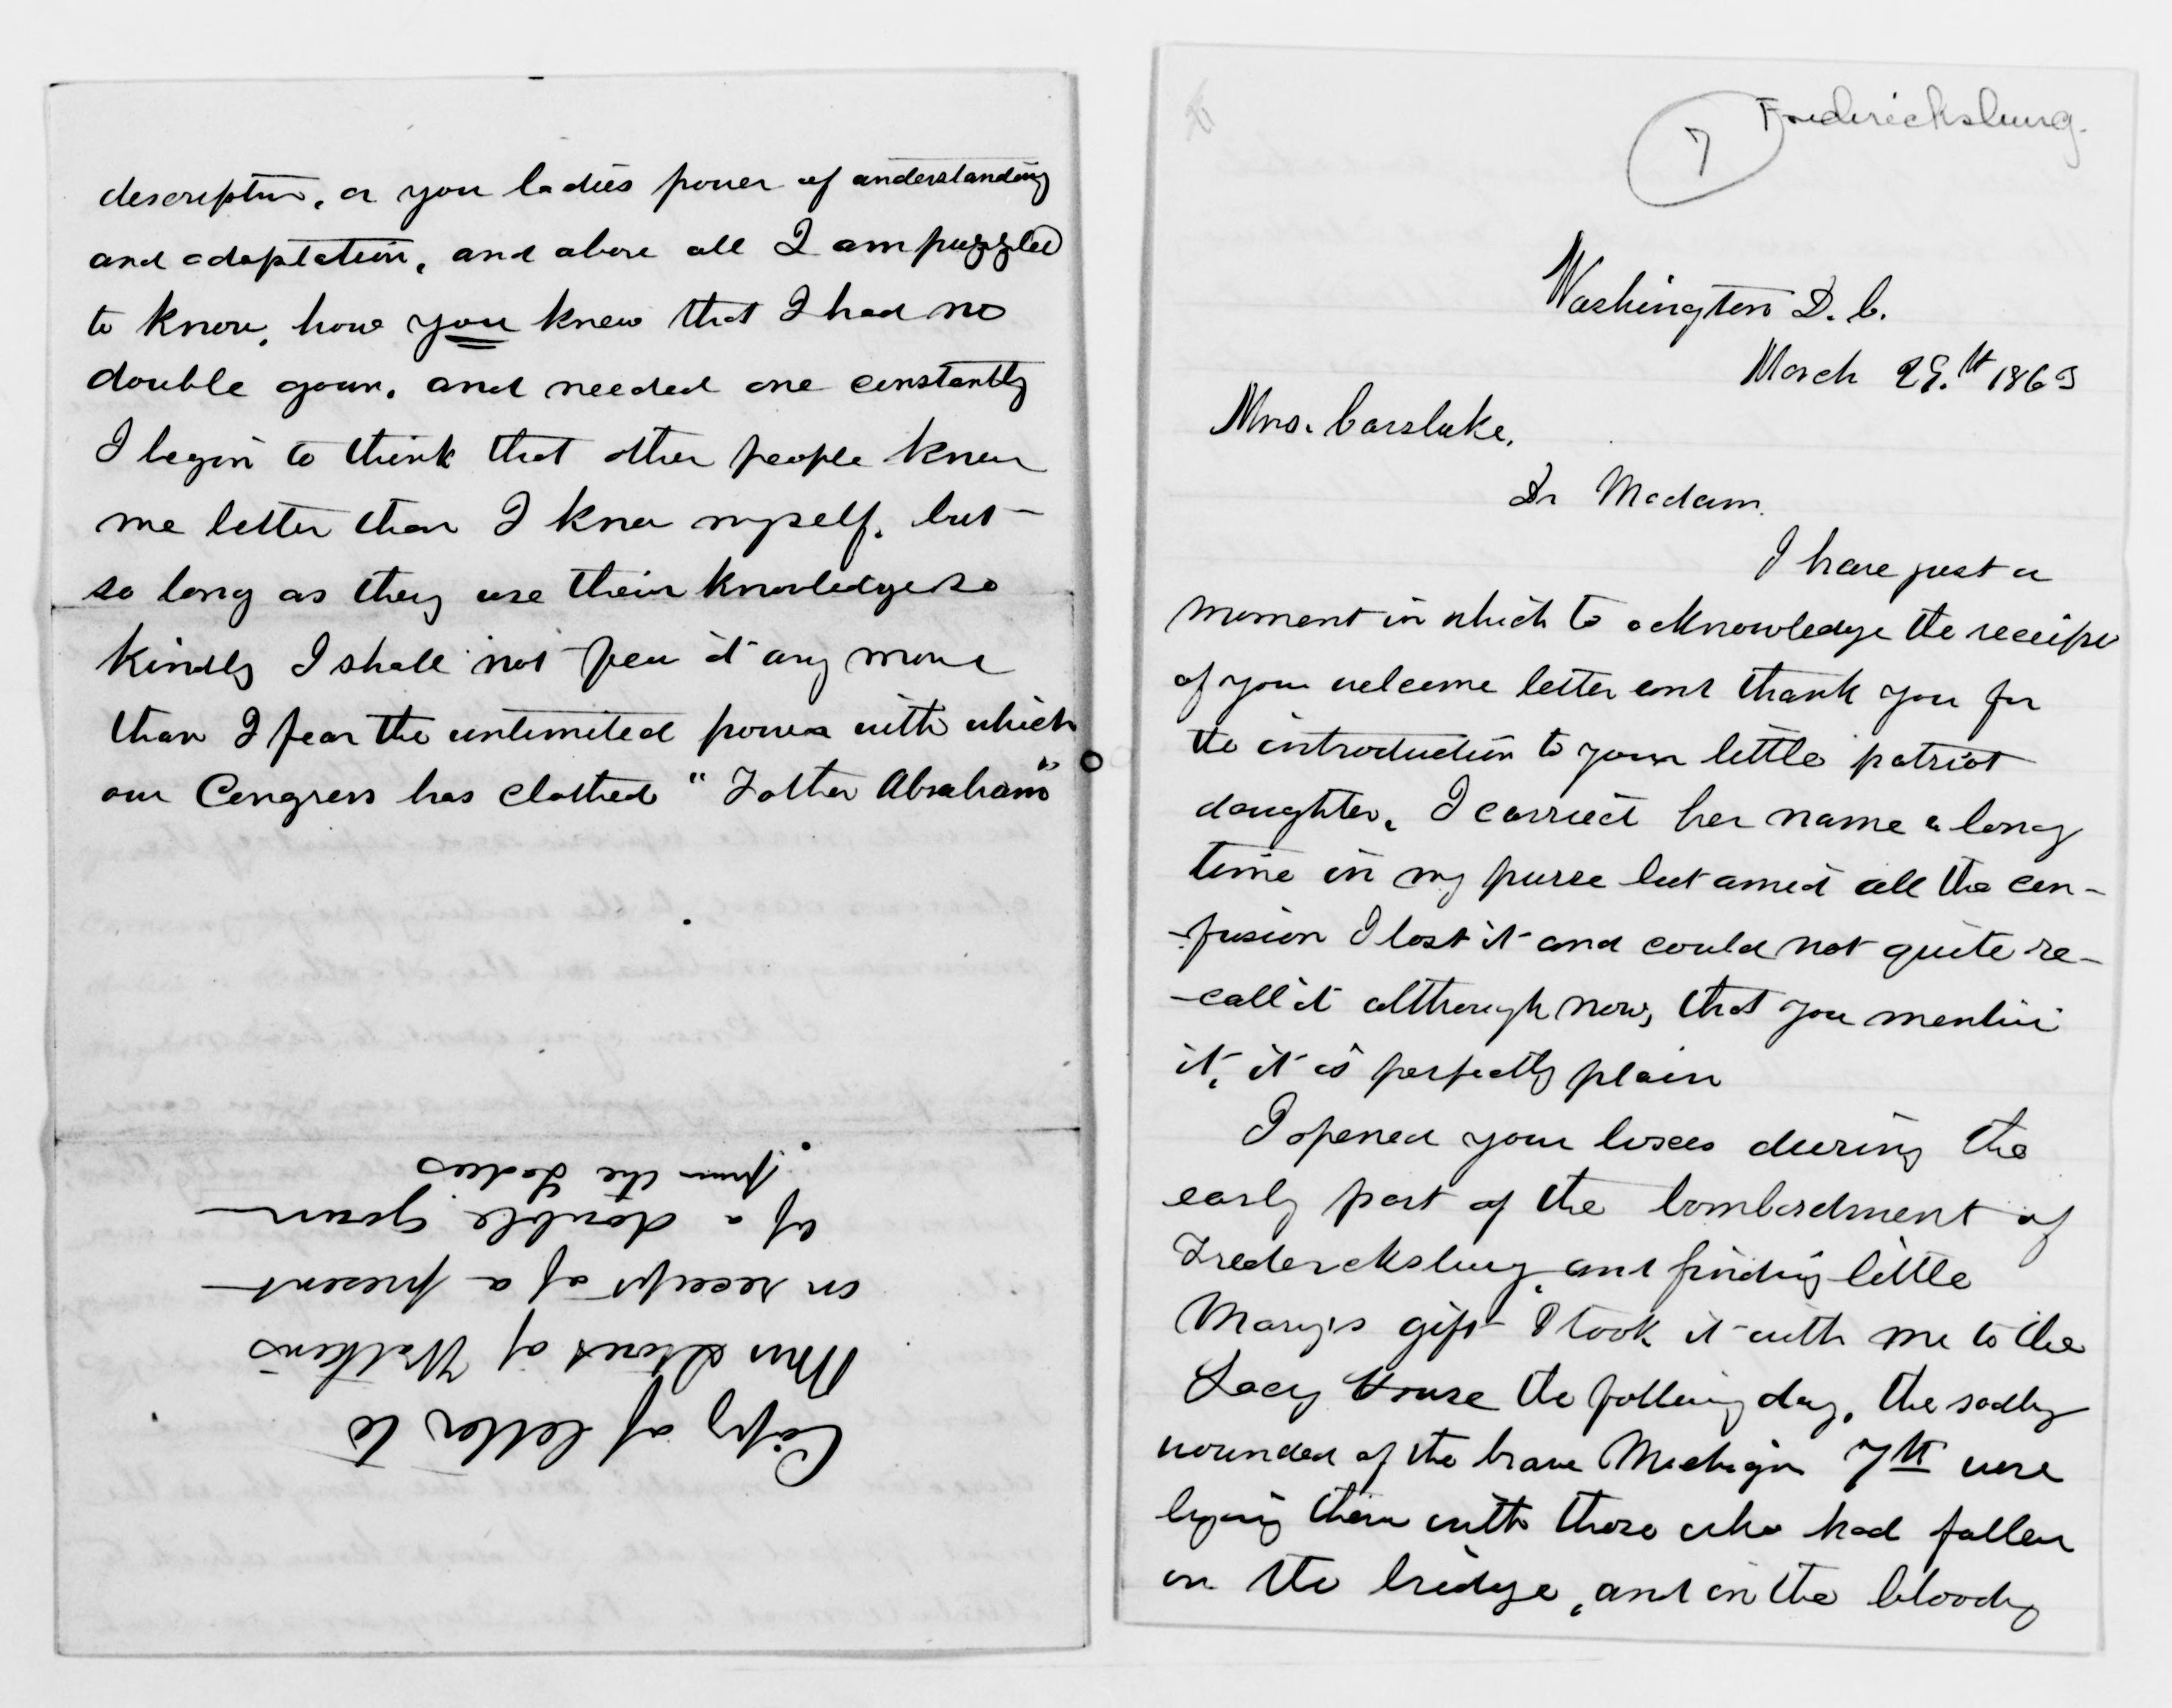 description, or you ladies power of understanding
and adaptation, and above all I am puzzled
to know, how you knew that I had no
double gown, and needed one constantly
I begin to think that other people know
me better than I know myself, but
so long as they use their knowledge so
kindly I shall not fear it any more
than I fear the unlimited power with which
our Congress has clothed "Father Abraham"
Copy of letter to
Mrs of Watkins
on receipt of a present
of a double gown
from the Ladies
7
Fredericksburg.
Washington D.C.
March 29.th 1863
Mrs. Carslake,
Dr Madam.
I have just a
moment in which to acknowledge the receipt
of your welcome letter and thank you for
the introduction to your little patriot
daughter. I carried her name a long
time in my purse but amid all the con-
-fusion I lost it and could not quite re-
-call it although now, that you mention
it, it is perfectly plain
I opened your boxes during the
early part of the bombardment of
Fredericksburg, and finding little
Mary's gift I took it with me to the
Lacy House the following day, the sadly
wounded of the brave Michigan 7th were
lying there with those who had fallen
on the bridge, and in the bloody